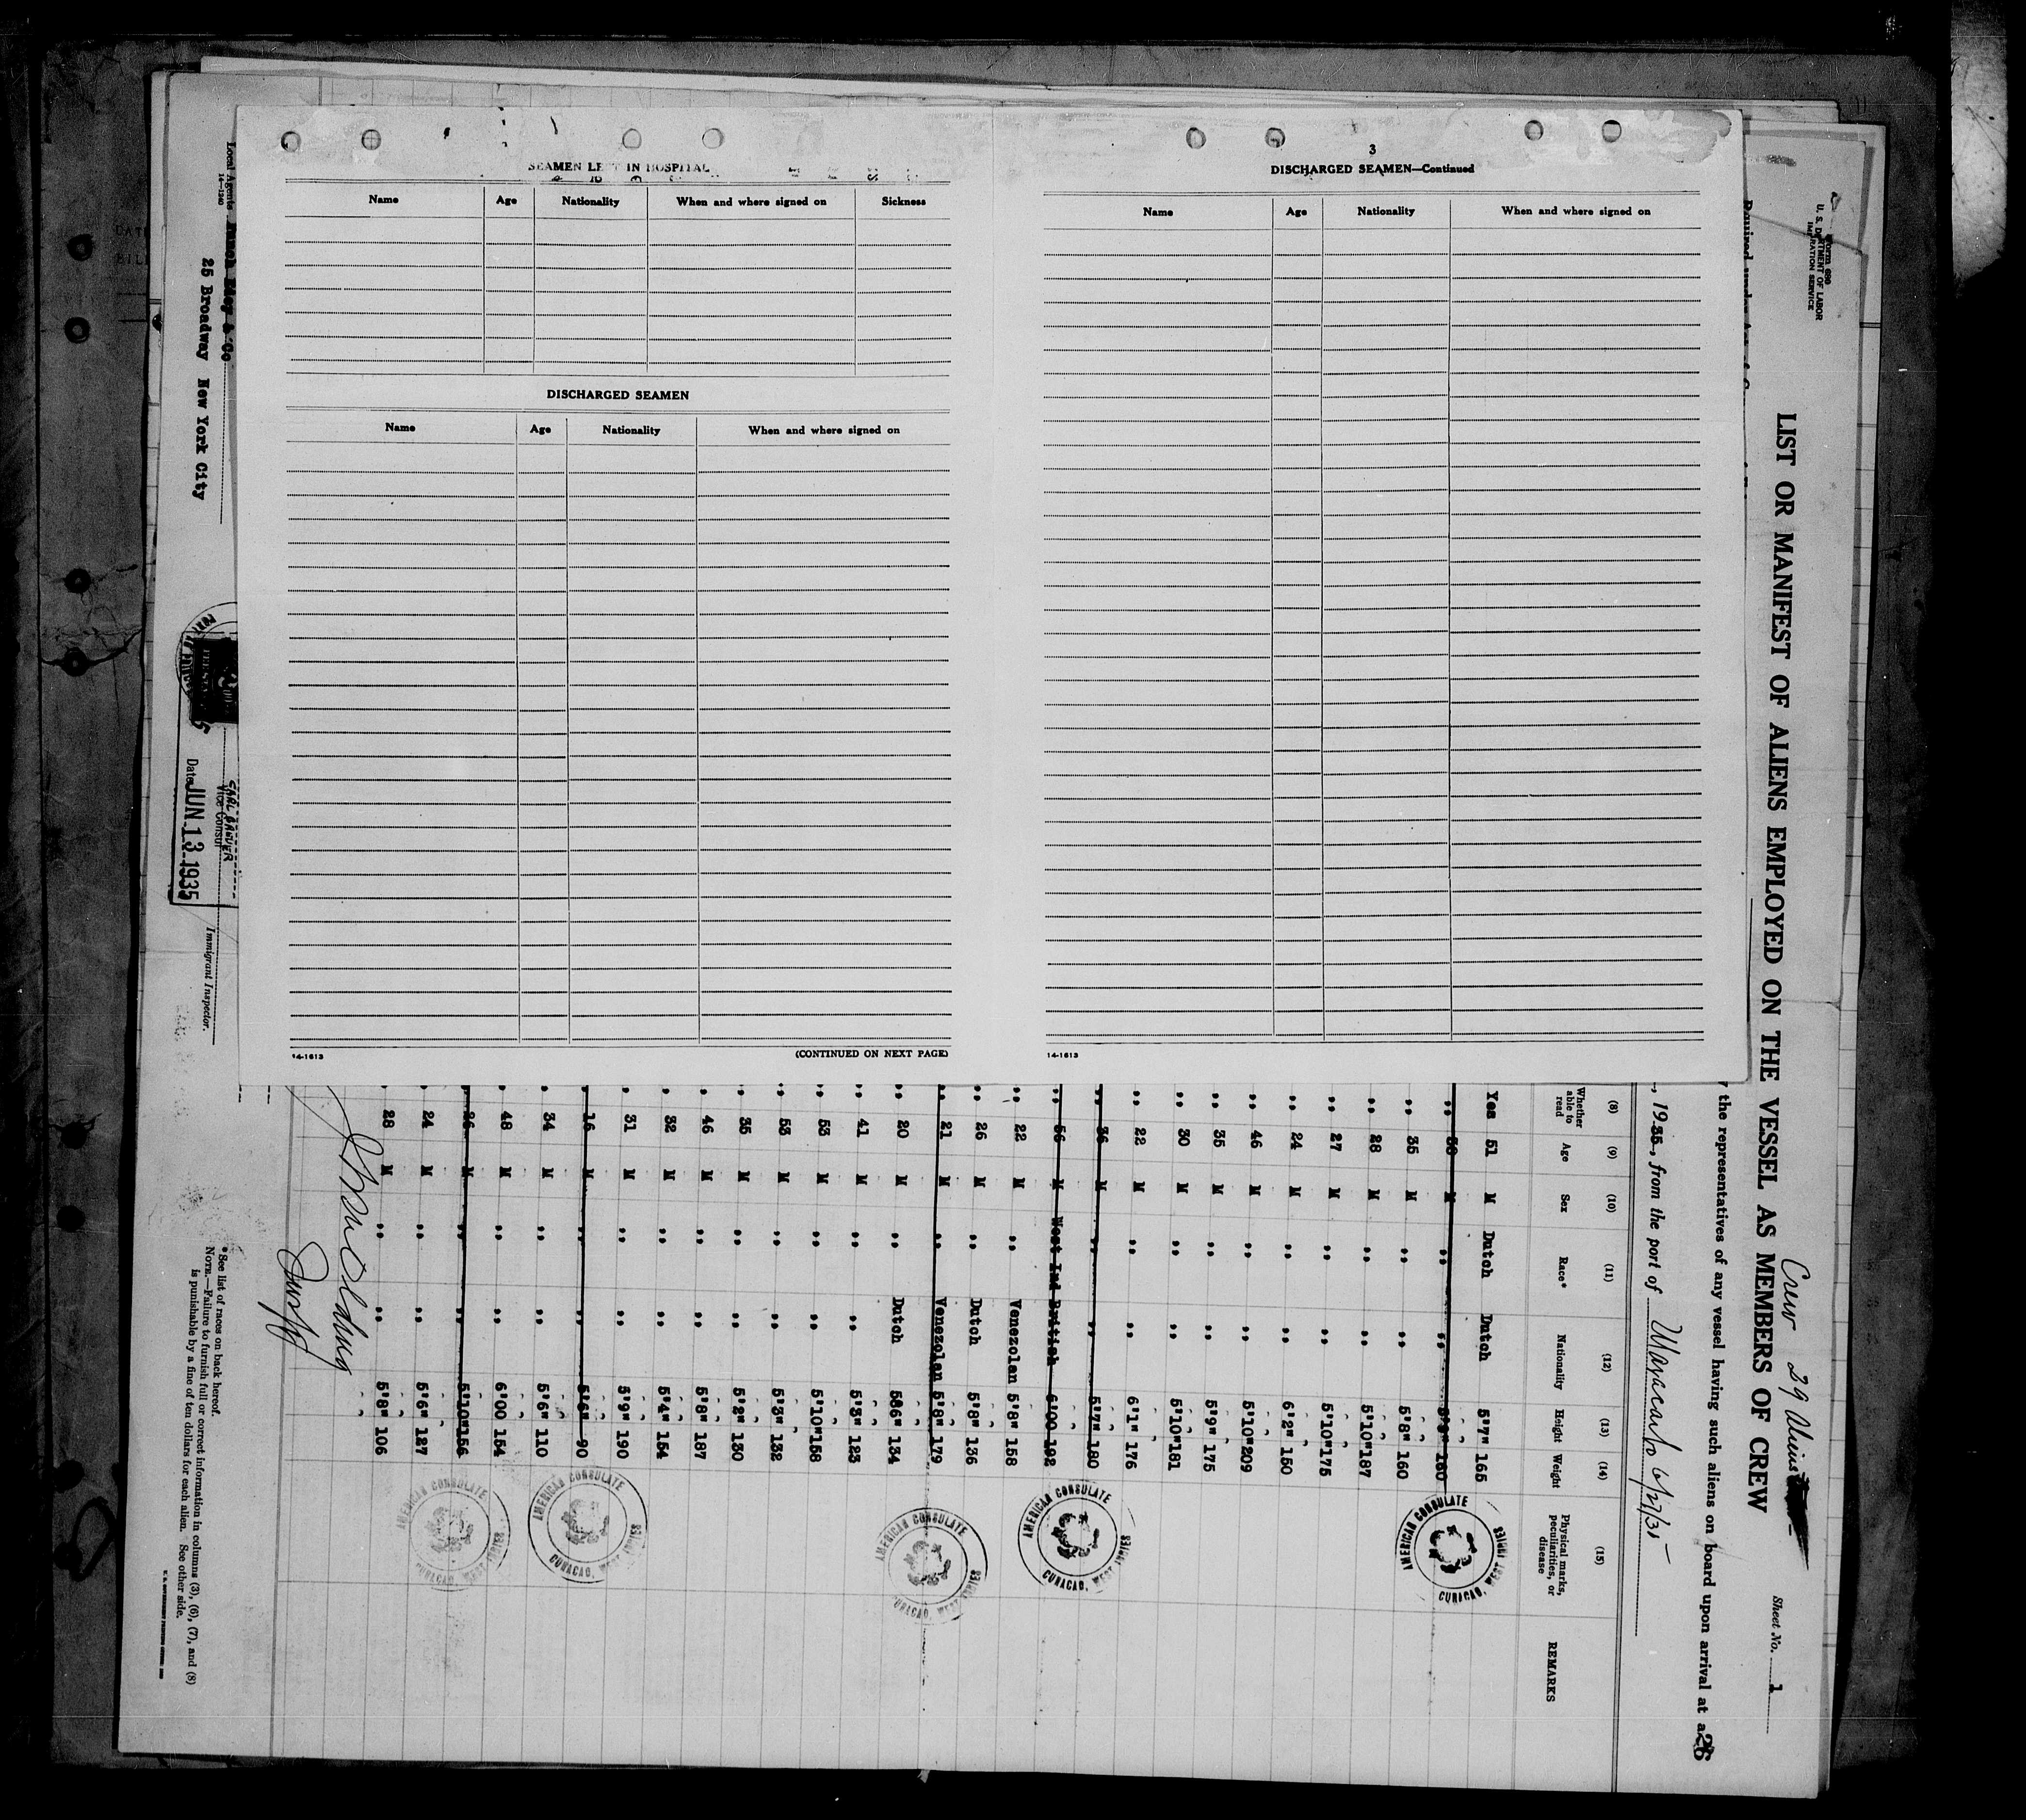 SEAMEN LEFT IN HOSPITAL
Name Age Nationality When and where signed on Sickness
DISCHARGED SEAMEN
Name Age Nationality When and where signed on
14-1613 (CONTINUED ON NEXT PAGE)
3
DISCHARGED SEAMEN—Continued
Name Age Nationality When and where signed on
14-1613
Form 680
U. S. DEPARTMENT OF LABOR
IMMIGRATION SERVICE
Crew 39 Aliens
Sheet No. 1
LIST OR MANIFEST OF ALIENS EMPLOYED ON THE VESSEL AS MEMBERS OF CREW
the representatives of any vessel having such aliens on board upon arrival at a
26
, 1935, from the port of Maracaibo 6/27/35
(8) (9) (10) (11) (12) (13) (14) (15)
Whether able to read Age Sex Race* Nationality Height Weight Physical marks, peculiarities, or disease REMARKS
Yes 51 M Dutch Dutch 5'7" 165
,, M ,, ,, 160
,, 35 M ,, ,, 5'8" 160
,, 28 M ,, ,, 5'10" 187
,, 27 M ,, ,, 5'10" 175
,, 24 M ,, ,, 6'2" 150
,, 46 M ,, ,, 5'10" 209
,, 35 M ,, ,, 5'9" 175
,, 30 M ,, ,, 5'10" 181
,, 22 M ,, ,, 6'1" 176
,, 36 M ,, ,, 5'7" 180
,, 56 M West Ind British 6'00 192
,, 22 M ,, Venezolan 5'8" 158
,, 26 M ,, Dutch 5'8" 136
,, 21 M ,, Venezolan 5'8" 179
,, 20 M ,, Dutch 586" 134
,, 41 M ,, ,, 5'3" 123
,, 53 M ,, ,, 5'10" 158
,, 53 M ,, ,, 5'3" 132
,, 35 M ,, ,, 5'2" 130
,, 46 M ,, ,, 5'8" 187
,, 32 M ,, ,, 5'4" 154
,, 31 M ,, ,, 5'9" 190
,, 16 M ,, ,, 5'6" 90
,, 34 M ,, ,, 5'6" 110
,, 48 M ,, ,, 6'00 154
,, 26 M ,, ,, 5'10" 156
,, 24 M ,, ,, 5'6" 127
,, 28 M ,, ,, 5'8" 106
AMERICAN CONSULATE
CURACAO, WEST INDIES
AMERICAN CONSULATE
CURACAO, WEST INDIES
AMERICAN CONSULATE
CURACAO, WEST INDIES
AMERICAN CONSULATE
CURACAO, WEST INDIES
AMERICAN CONSULATE
CURACAO, WEST INDIES
Local Agents
14-1240
25 Broadway New York City
CARL
Vice Consul
Date JUN 13 1935
Immigrant Inspector.
*See list of races on back hereof.
NOTE.—Failure to furnish full or correct information in columns (3), (6), (7), and (8)
is punishable by a fine of ten dollars for each alien. See other side.